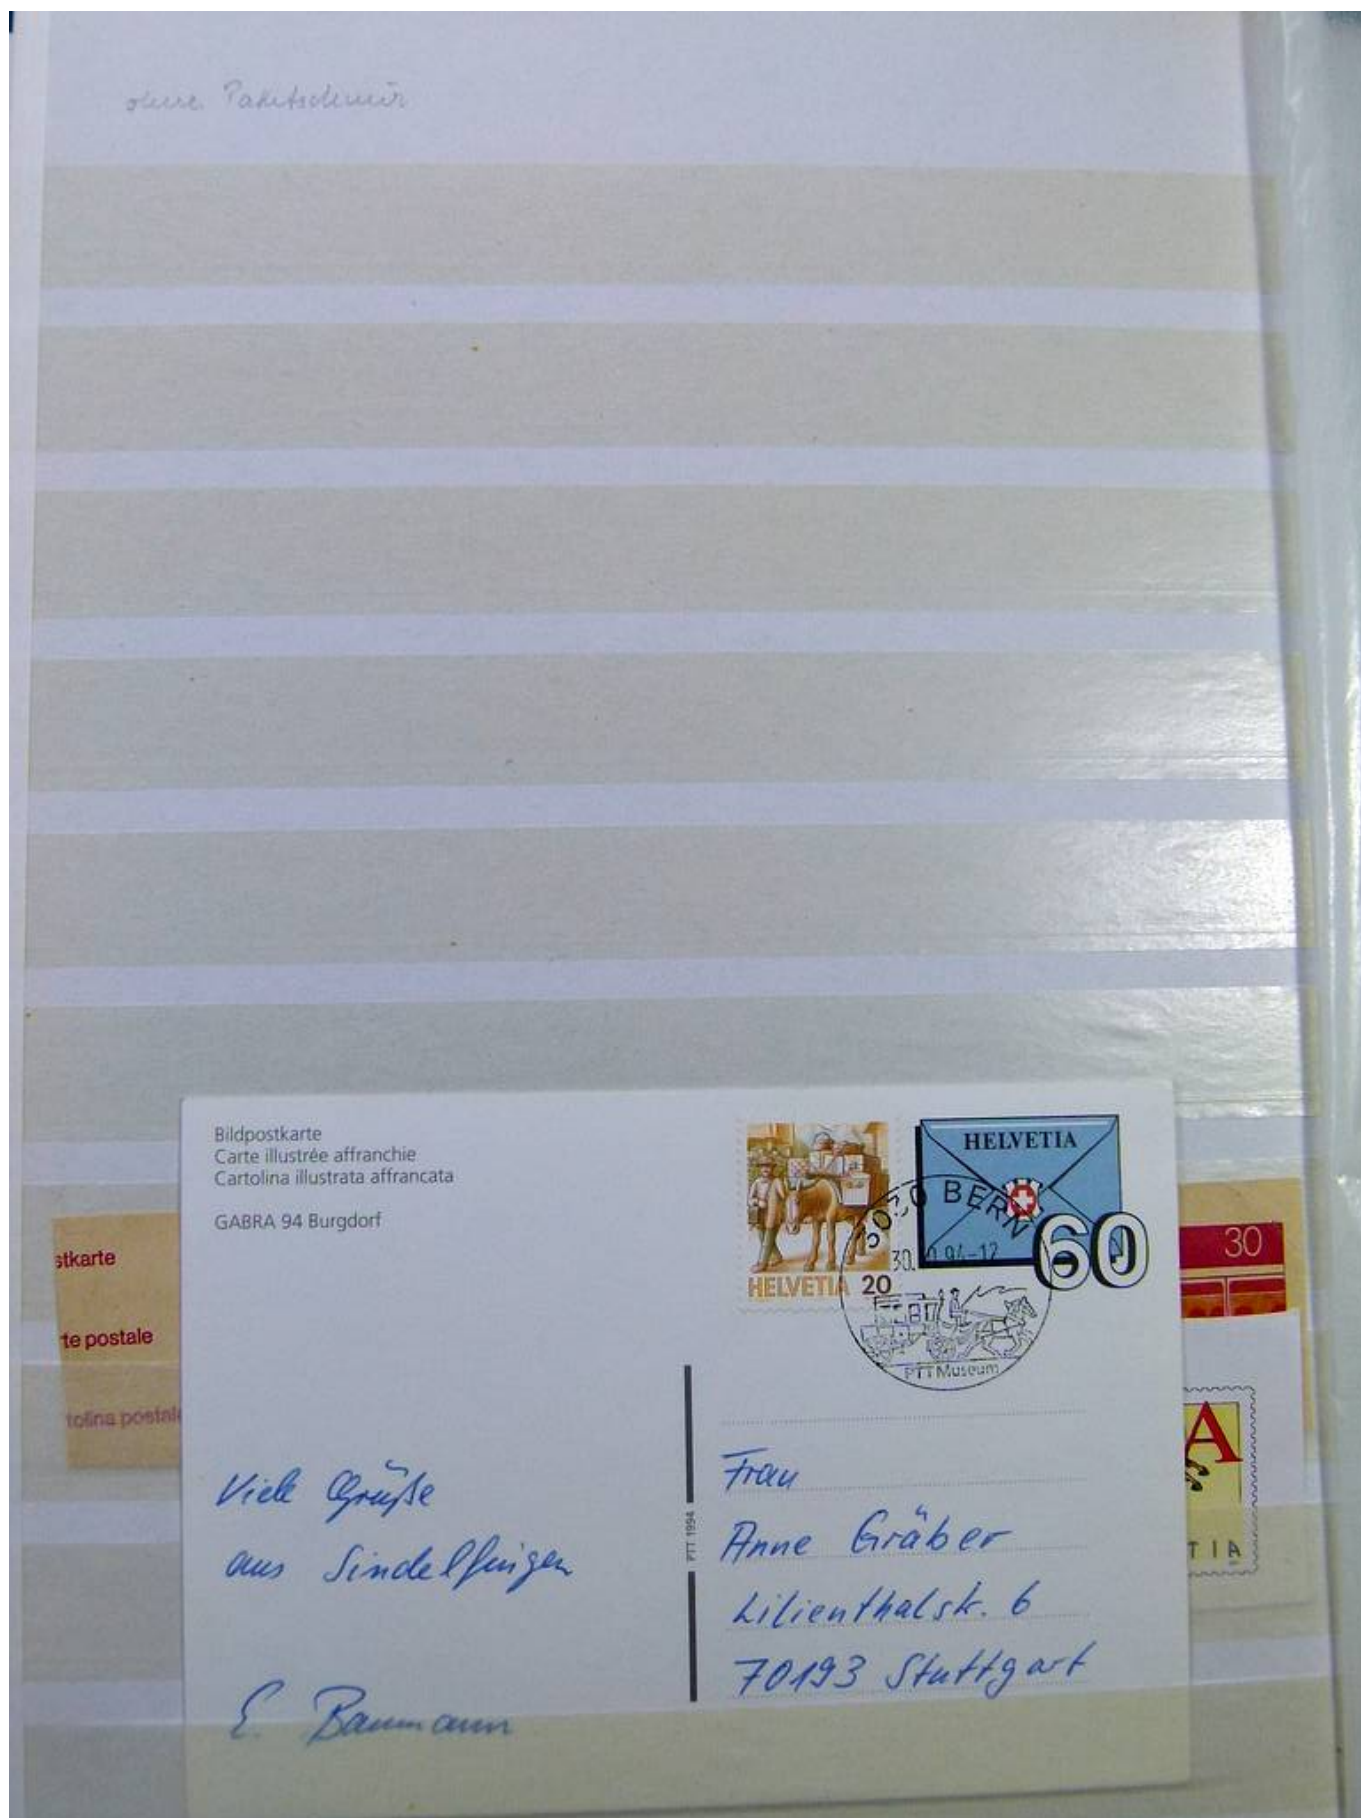 ohne Paketschnur
Bildpostkarte
Carte illustrée affranchie
Cartolina illustrata affrancata
GABRA 94 Burgdorf
HELVETIA 20
HELVETIA
60
3030 BERN
30. 94-12
PTT Museum
30
stkarte
te postale
tolina postale
A
TIA
PTT 1994
Viele Grüße
aus Sindelfingen
E. Baumann
Frau
Anne Gräber
Lilienthalstr. 6
70193 Stuttgart